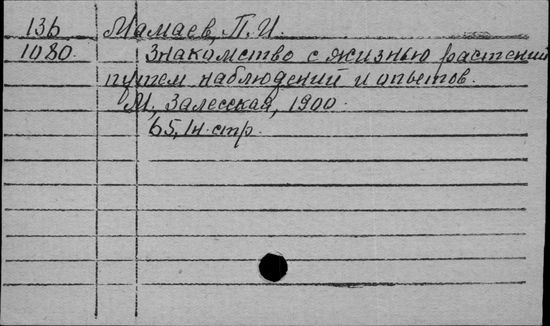 13b Мамаев, П. И.
1080. Знакомство с жизнью растений
путем наблюдений и опытов.
М, Залесская, 1900.
65, 1н. стр.